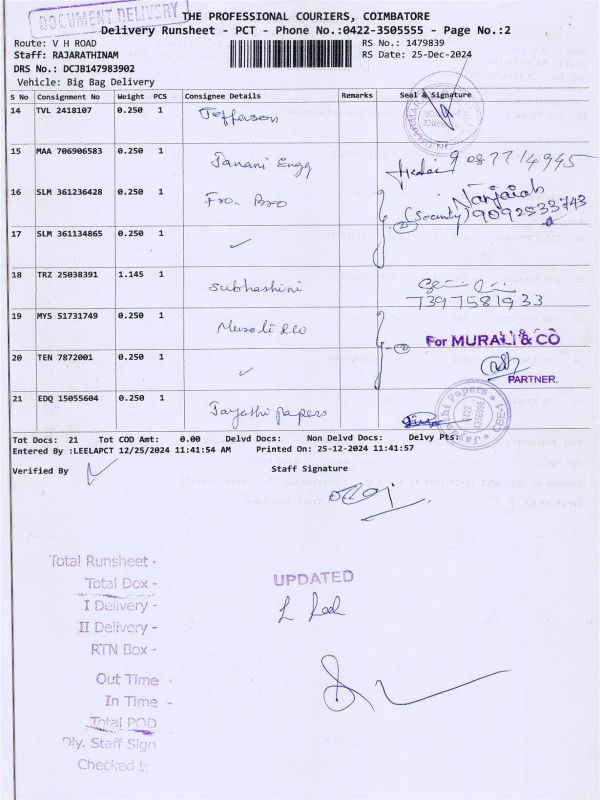 DOCUMENT DELIVERY
THE PROFESSIONAL COURIERS, COIMBATORE
Delivery Runsheet - PCT - Phone No.:0422-3505555 - Page No.:2
Route: V H ROAD
RS No.: 1479839
Staff: RAJARATHINAM
RS Date: 25-Dec-2024
DRS No.: DCJB147983902
Vehicle: Big Bag Delivery
S No Consignment No Weight PCS Consignee Details Remarks Seal & Signature
14 TVL 2418107 0.250 1 Jefferson
15 MAA 706906583 0.250 1 Engg
16 SLM 361236428 0.250 1
Nanjaiah
(Security) 9092533743
17 SLM 361134865 0.250 1
18 TRZ 25038391 1.145 1 Subhashini
7397581933
19 MYS 51731749 0.250 1 Murali &co
For MURALI & CO
20 TEN 7872001 0.250 1
PARTNER.
21 EDQ 15055604 0.250 1 Jayathi papers
Tot Docs: 21 Tot COD Amt: 0.00 Delvd Docs: Non Delvd Docs: Delvy Pts:
Entered By :LEELAPCT 12/25/2024 11:41:54 AM Printed On: 25-12-2024 11:41:57
Verified By
Staff Signature
Total Runsheet -
Total Dox -
I Delivery -
II Delivery -
RTN Box -
Out Time -
In Time -
Total POD
Dly. Staff Sign
Checked
UPDATED